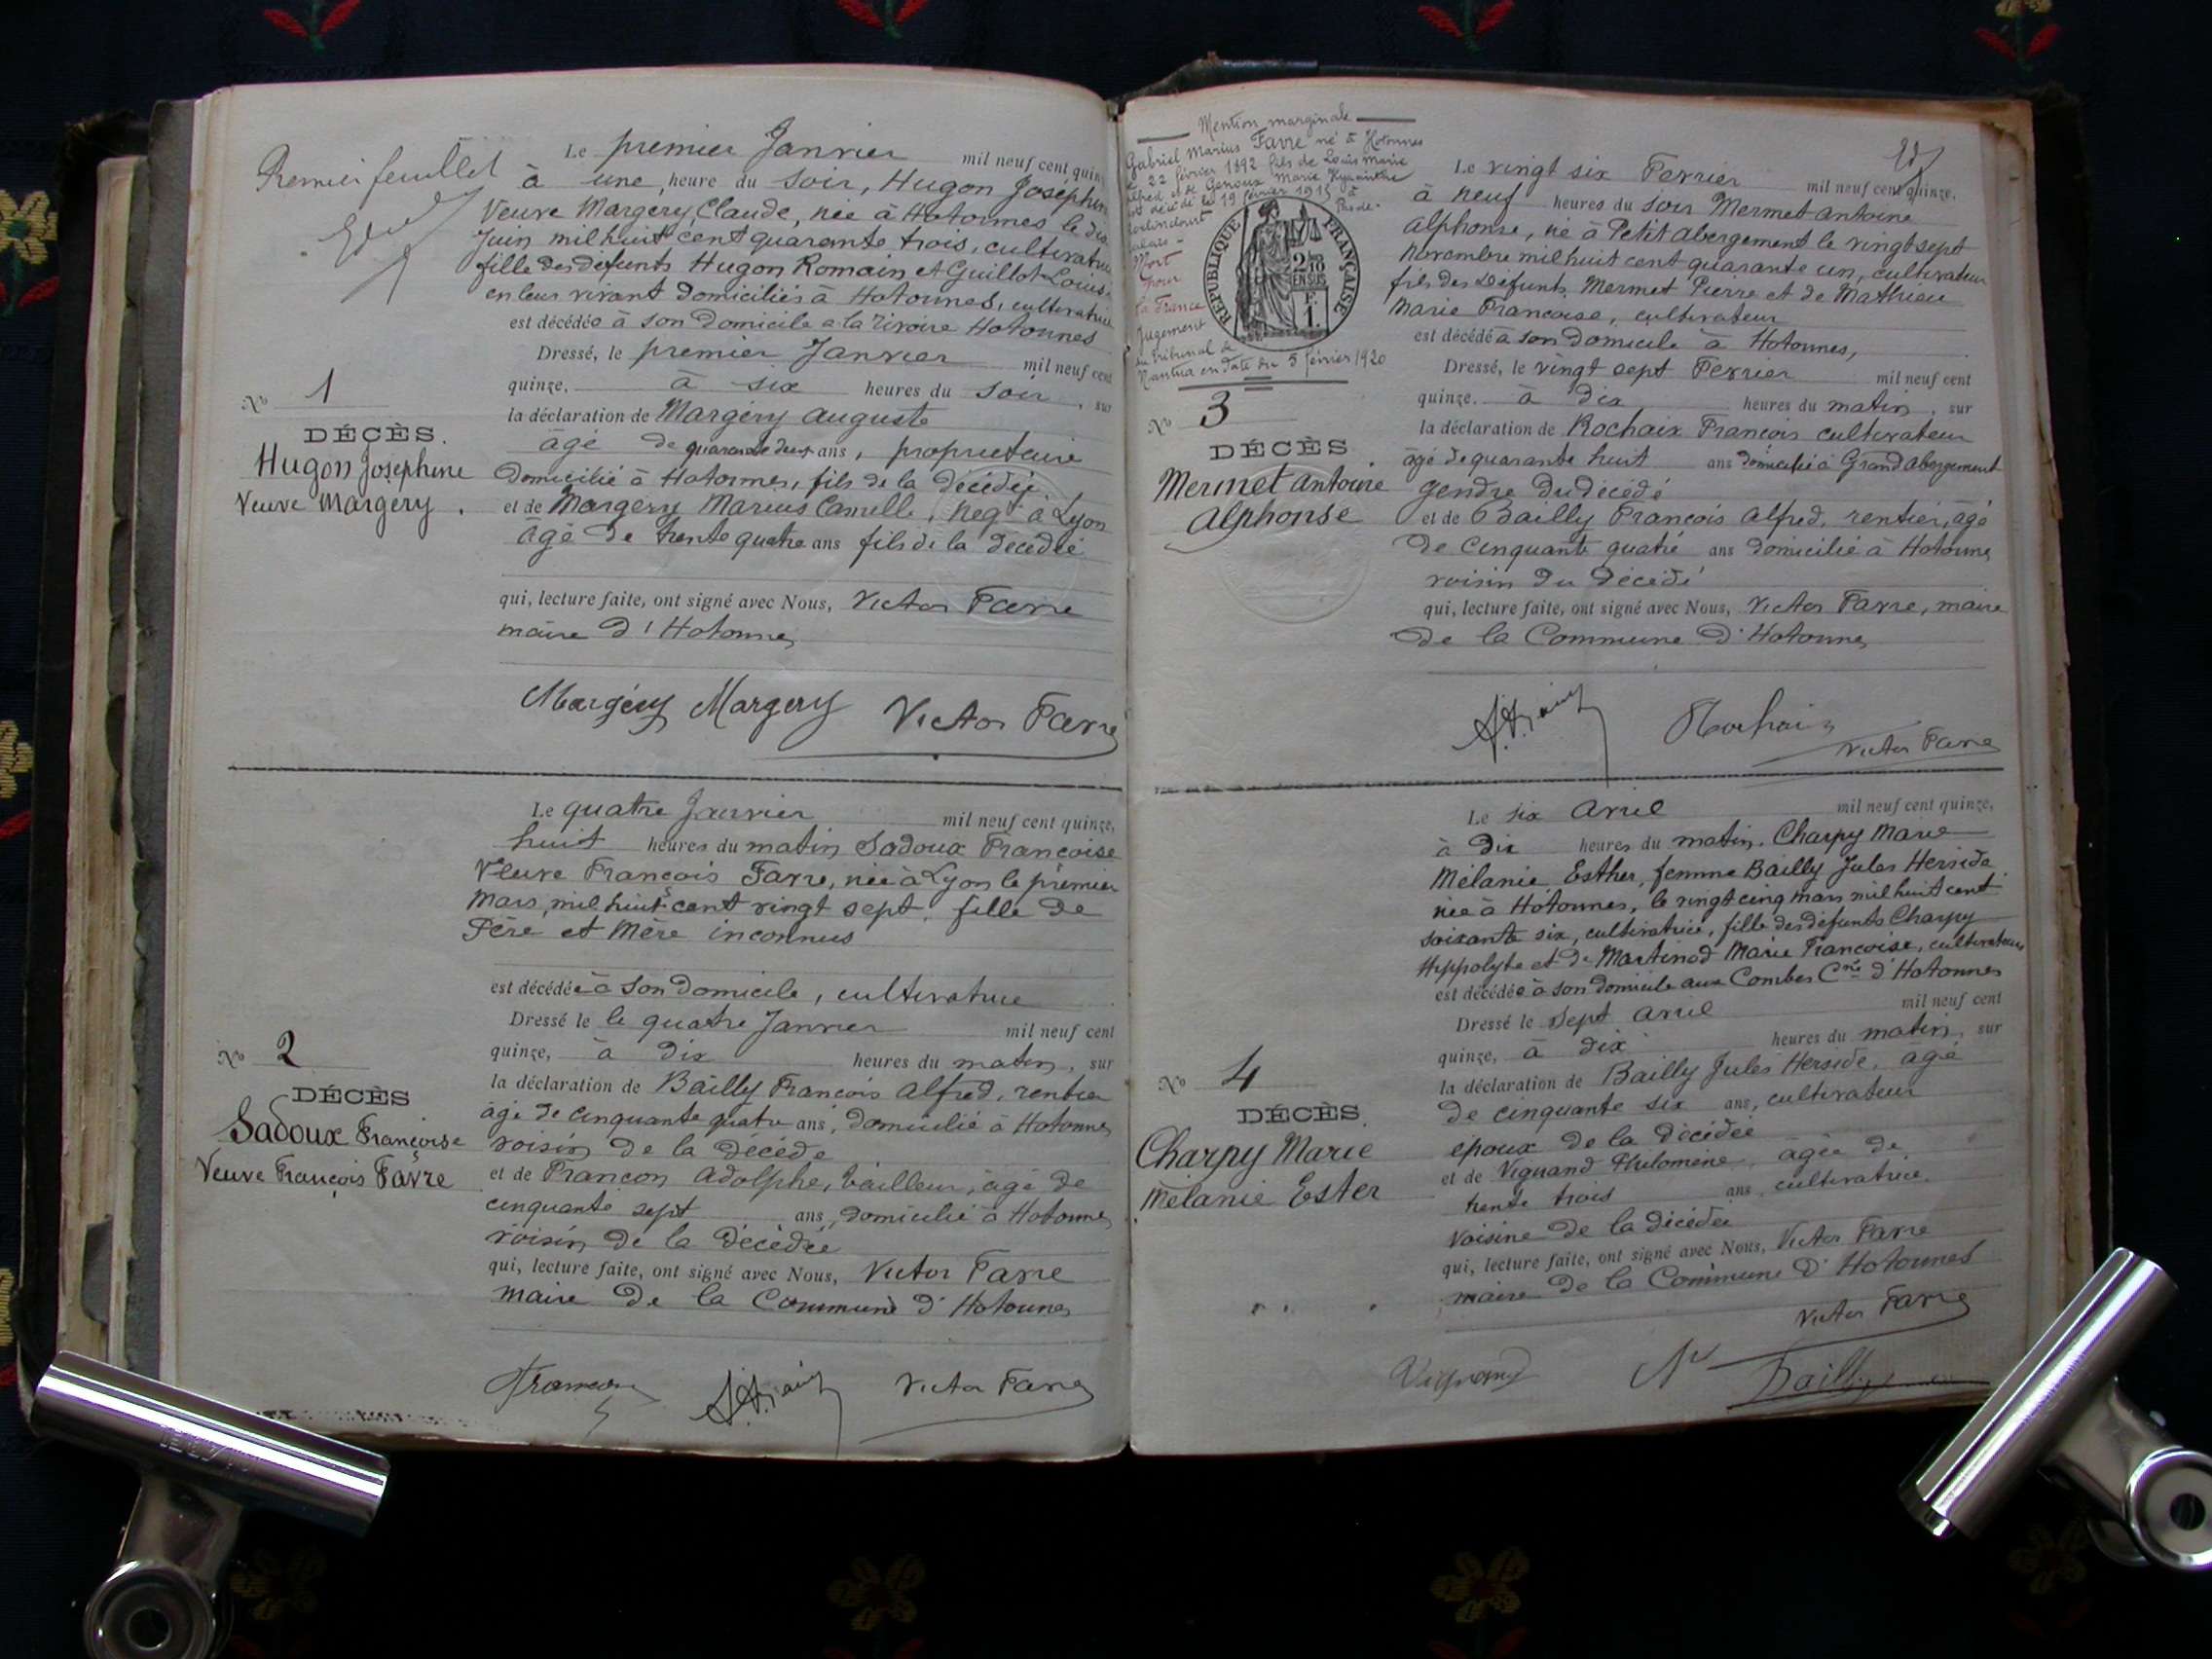 Premier feuillet
Le premier Janvier mil neuf cent quin
à une heure du soir, Hugon Josephin
Veuve Margery Claude, née à Hotonnes le dix
Juin mil huit cent quarante trois, cultivatrice
fille des defunts Hugon Romain et Guillot Louis
en leur vivant domiciliés à Hotonnes, cultivatrice
est décédée à son domicile a la rivoire Hotonnes
Dressé, le premier Janvier mil neuf cent
quinze, à six heures du soir, sur
la déclaration de Margéry Auguste
âgé de quarante deux ans, propriétaire
domicilié à Hotonnes, fils de la décédée
et de Margery Marius Camille, négt à Lyon
âgé de trente quatre ans fils de la décédée
qui, lecture faite, ont signé avec Nous, Victor Favre
maire d'Hotonnes
Margéry Margery Victor Favre
No 1
DÉCÈS.
Hugon Josephine
Veuve Margery.
Le quatre Janvier mil neuf cent quinze,
huit heures du matin Sadoux Françoise
Veuve François Favre, née à Lyon le premier
Mars, mil huit cent vingt sept, fille de
Père et Mère inconnus
est décédée à son domicile, cultivatrice
Dressé le le quatre Janvier mil neuf cent
quinze, à dix heures du matin, sur
la déclaration de Bailly François Alfred, rentier
âgé de cinquante quatre ans, domicilié à Hotonnes
voisin de la décédé
et de Francon Adolphe, bailleur, âgé de
cinquante sept ans, domicilié à Hotonnes
voisin de la décédée
qui, lecture faite, ont signé avec Nous, Victor Favre
maire de la Commune d'Hotonnes
Francon Victor Favre
No 2
DÉCÈS
Sadoux Françoise
Veuve François Favre
Mention marginale
Gabriel Marius Favre né à Hotonnes
le 22 février 1892 fils de Louis Marie
Alfred et de Genoux Marie Hyacinthe
est décédé le 19 février 1915 à
Pas-de-
Calais -
Mort
pour
la France
Jugement
du Tribunal de
Nantua en date du 5 février 1920
RÉPUBLIQUE FRANÇAISE
2/10
EN SUS
F.
1.
Le vingt six Fevrier mil neuf cent quinze,
à neuf heures du soir Mermet Antoine
Alphonse, né à Petit Abergement le vingt sept
Novembre mil huit cent quarante un, cultivateur
fils des Défunts Mermet Pierre et de Mathieu
Marie Françoise, cultivateur
est décédé à son domicile à Hotonnes,
Dressé, le vingt sept Fevrier mil neuf cent
quinze, à dix heures du matin, sur
la déclaration de Rochaix François cultivateur
âgé de quarante huit ans domicilié à Grand Abergement
gendre du décédé
et de Bailly François Alfred, rentier, âgé
de cinquante quatre ans domicilié à Hotonnes
voisin du décédé
qui, lecture faite, ont signé avec Nous, Victor Favre, maire
de la Commune d'Hotonnes
Rochaix
Victor Favre
No 3
DÉCÈS
Mermet Antoine
Alphonse
Le six Avril mil neuf cent quinze,
à dix heures du matin, Charpy Marie
Mélanie Esther, femme Bailly Jules Herside
née à Hotonnes, le vingt cinq mars mil huit cent
soixante six, cultivatrice, fille des défunts Charpy
Hippolyte et de Martinod Marie Françoise, cultivateurs
est décédée à son domicile aux Combes Cne d'Hotonnes
Dressé le sept avril mil neuf cent
quinze, à dix heures du matin, sur
la déclaration de Bailly Jules Herside, âgé
de cinquante six ans, cultivateur
époux de la décédée
et de Vignand Philomène, âgée de
trente trois ans, cultivatrice.
Voisine de la décédée
qui, lecture faite, ont signé avec Nous, Victor Favre
maire de la Commune d'Hotonnes
Victor Favre
Vignand Bailly
No 4
DÉCÈS.
Charpy Marie
Mélanie Ester